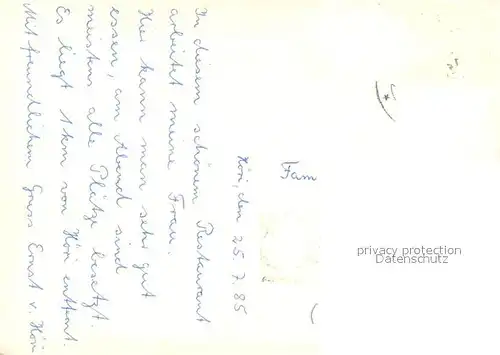 Höri, den 25.7.85
In diesem schönem Restaurant
arbeitet meine Frau.
Hier kann man sehr gut
essen, am Abend sind
meistens alle Plätze besetzt.
Es liegt 1 km von Höri entfernt.
Mit freundlichem Gruss Ernst v. Höri
Fam
privacy protection
Datenschutz